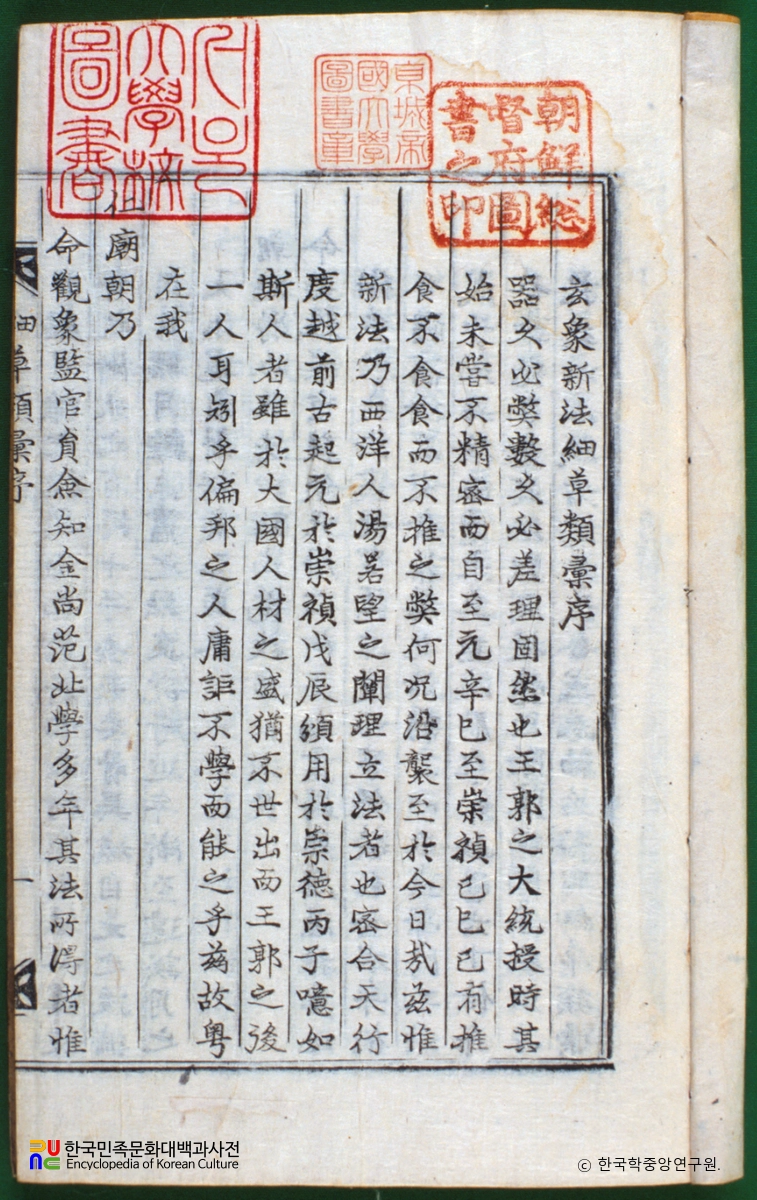 朝鮮総
督府圖
書之印
京城帝
國大學
圖書章
서울
大學校
圖書
玄象新法細草類彙序
器久必弊數久必差理固然也王郭之大統授時其
始未嘗不精密而自至元辛巳至崇禎己巳已有推
食不食食而不推之弊何况沿襲至於今日哉兹惟
新法乃西洋人湯若望之闡理立法者也密合天行
度越前古起元於崇禎戊辰頒用於崇德丙子噫如
斯人者雖於大國人材之盛猶不世出而王郭之後
一人耳矧乎偏邦之人庸詎不學而能之乎兹故粤
在我
仁廟朝乃
命觀象監官員僉知金尚范北學多年其法所得者惟
細草類彙序 一
한국민족문화대백과사전
Encyclopedia of Korean Culture
ⓒ 한국학중앙연구원.